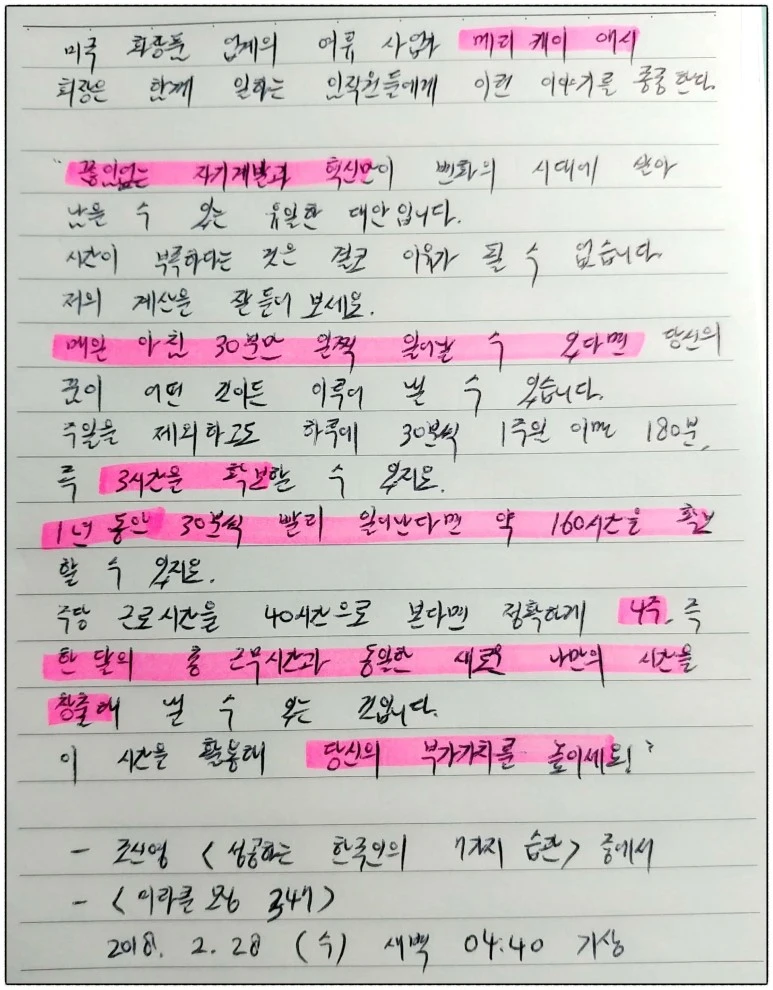 미국 화장품 업계의 여류 사업가 메리 케이 애시
회장은 함께 일하는 임직원들에게 이런 이야기를 종종 한다.
"끊임없는 자기계발과 혁신만이 변화의 시대에 살아
남을 수 있는 유일한 대안입니다.
시간이 부족하다는 것은 결코 이유가 될 수 없습니다.
저의 계산을 잘 들어 보세요.
매일 아침 30분만 일찍 일어날 수 있다면 당신의
꿈이 어떤 것이든 이루어 낼 수 있습니다.
주일을 제외하고도 하루에 30분씩 1주일 이면 180분,
즉 3시간을 확보할 수 있지요.
1년 동안 30분씩 빨리 일어난다면 약 160시간을 확보
할 수 있지요.
주당 근로시간을 40시간으로 본다면 정확하게 4주. 즉
한 달의 총 근무시간과 동일한 새로운 나만의 시간을
창출해 낼 수 있는 것입니다.
이 시간을 활용해 당신의 부가가치를 높이세요!"
- 조신영 <성공하는 한국인의 7가지 습관> 중에서
- <미라클 모닝 347>
2018. 2. 28 (수) 새벽 04:40 기상